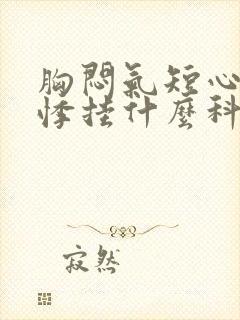 胸悶氣短心
悸挂什麼科
寂然